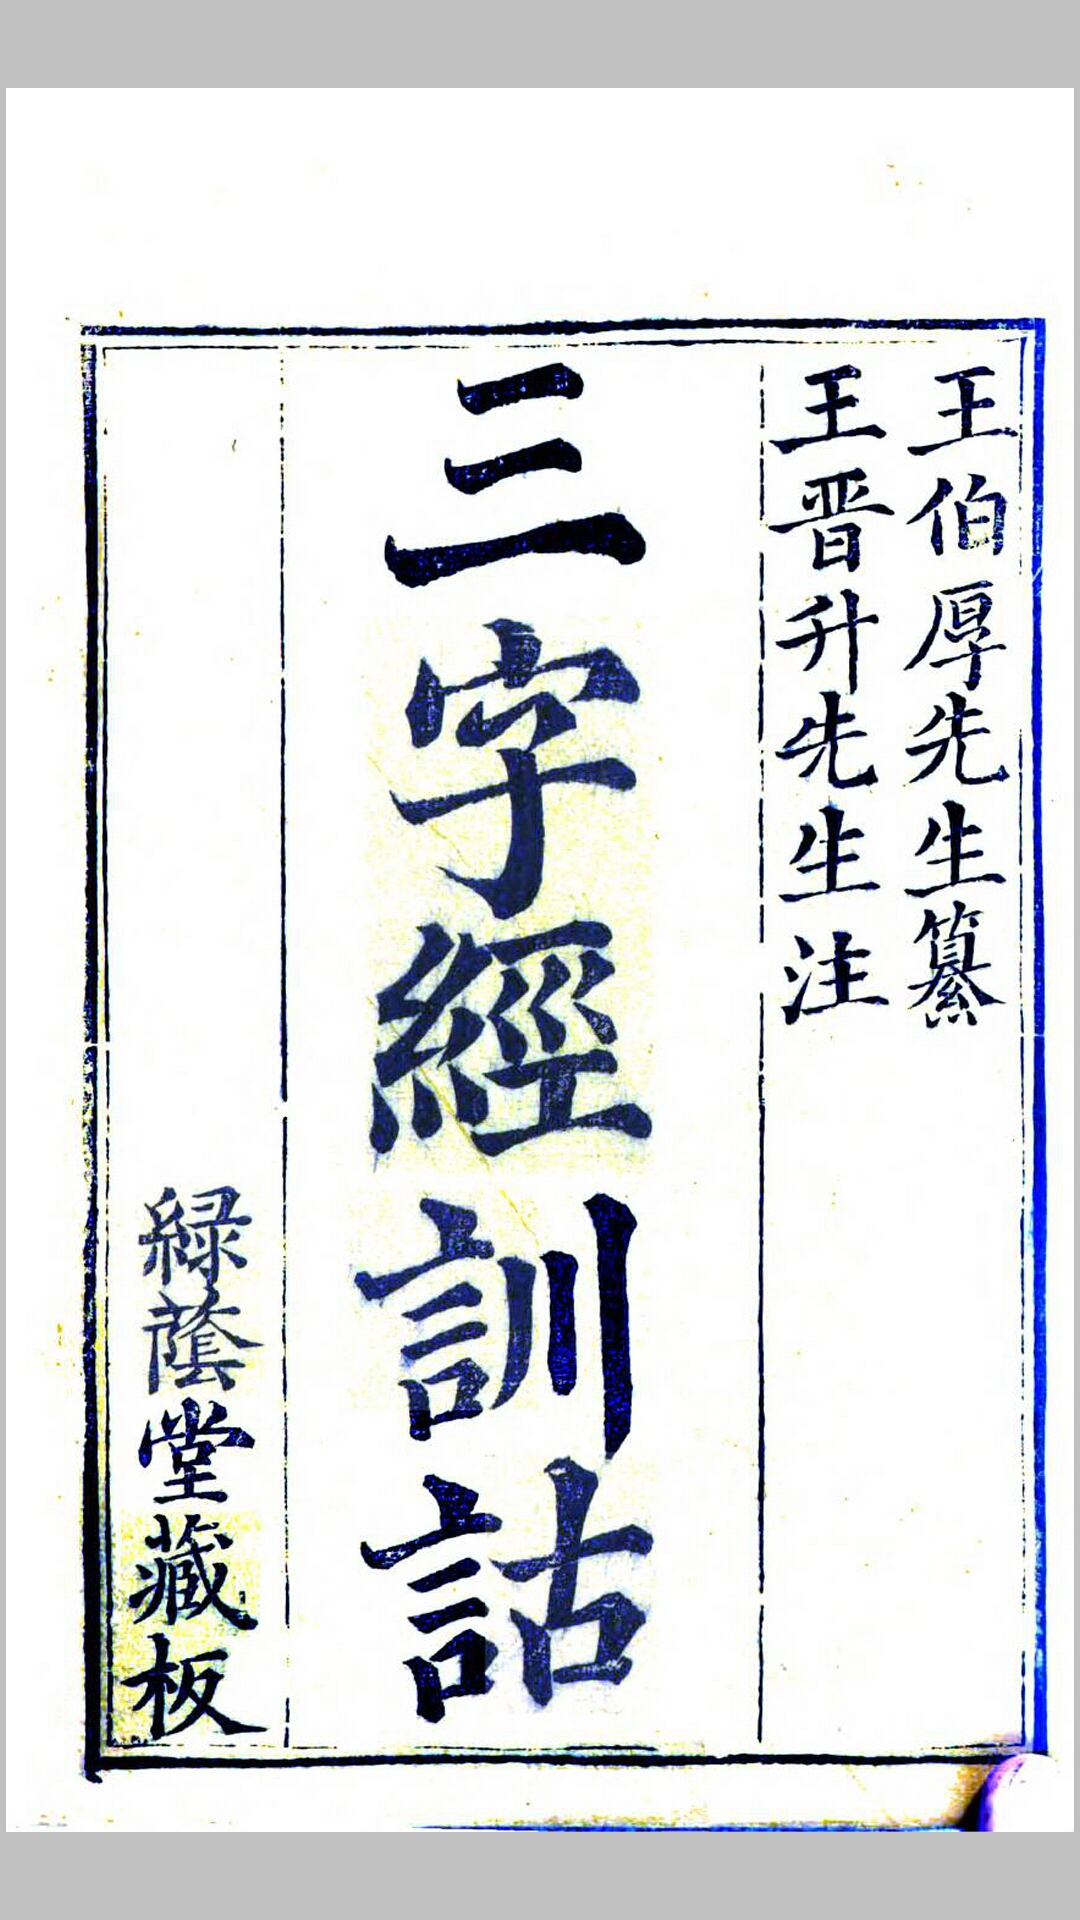 王伯厚先生纂
王晋升先生注
三字經訓詁
緑蔭堂藏板